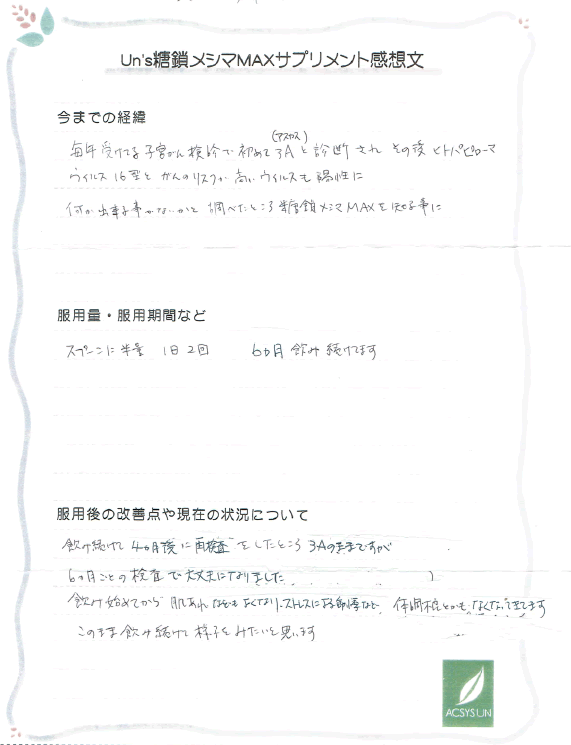 Un's糖鎖メシマMAXサプリメント感想文
今までの経緯
(アスカス)
毎年受けてる子宮がん検診で初めて3Aと診断され その後ヒトパピローマ
ウィルス16型と がんのリスクが高いウィルスも陽性に
何か出来る事がないかと調べたところ糖鎖メシマMAXを知る事に
服用量・服用期間など
スプーンに半量 1日2回 6ヵ月飲み続けてます
服用後の改善点や現在の状況について
飲み続けて4ヵ月後に再検査をしたところ3Aのままですが
6ヵ月ごとの検査で大丈夫になりました )
飲み始めてから肌あれなどもなくなり、ストレスによる など、体調不良とかも なくなってきてます
このまま飲み続けて様子をみたいと思います
ACSYS UN